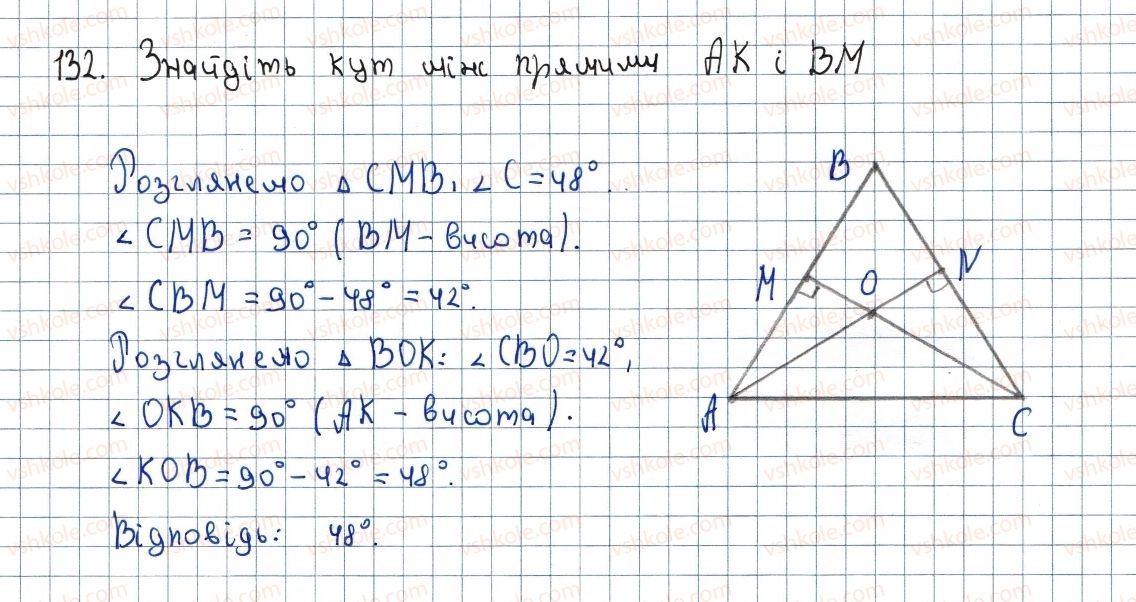 132. Знайдіть кут між прямими AK і BM
Розглянемо △ CMB, ∠ C = 48°.
∠ CMB = 90° (BM - висота).
∠ CBM = 90° - 48° = 42°.
Розглянемо △ BOK: ∠ CBO = 42°,
∠ OKB = 90° (AK - висота).
∠ KOB = 90° - 42° = 48°.
Відповідь: 48°.
B
M
O
N
A
C
vshkole.com